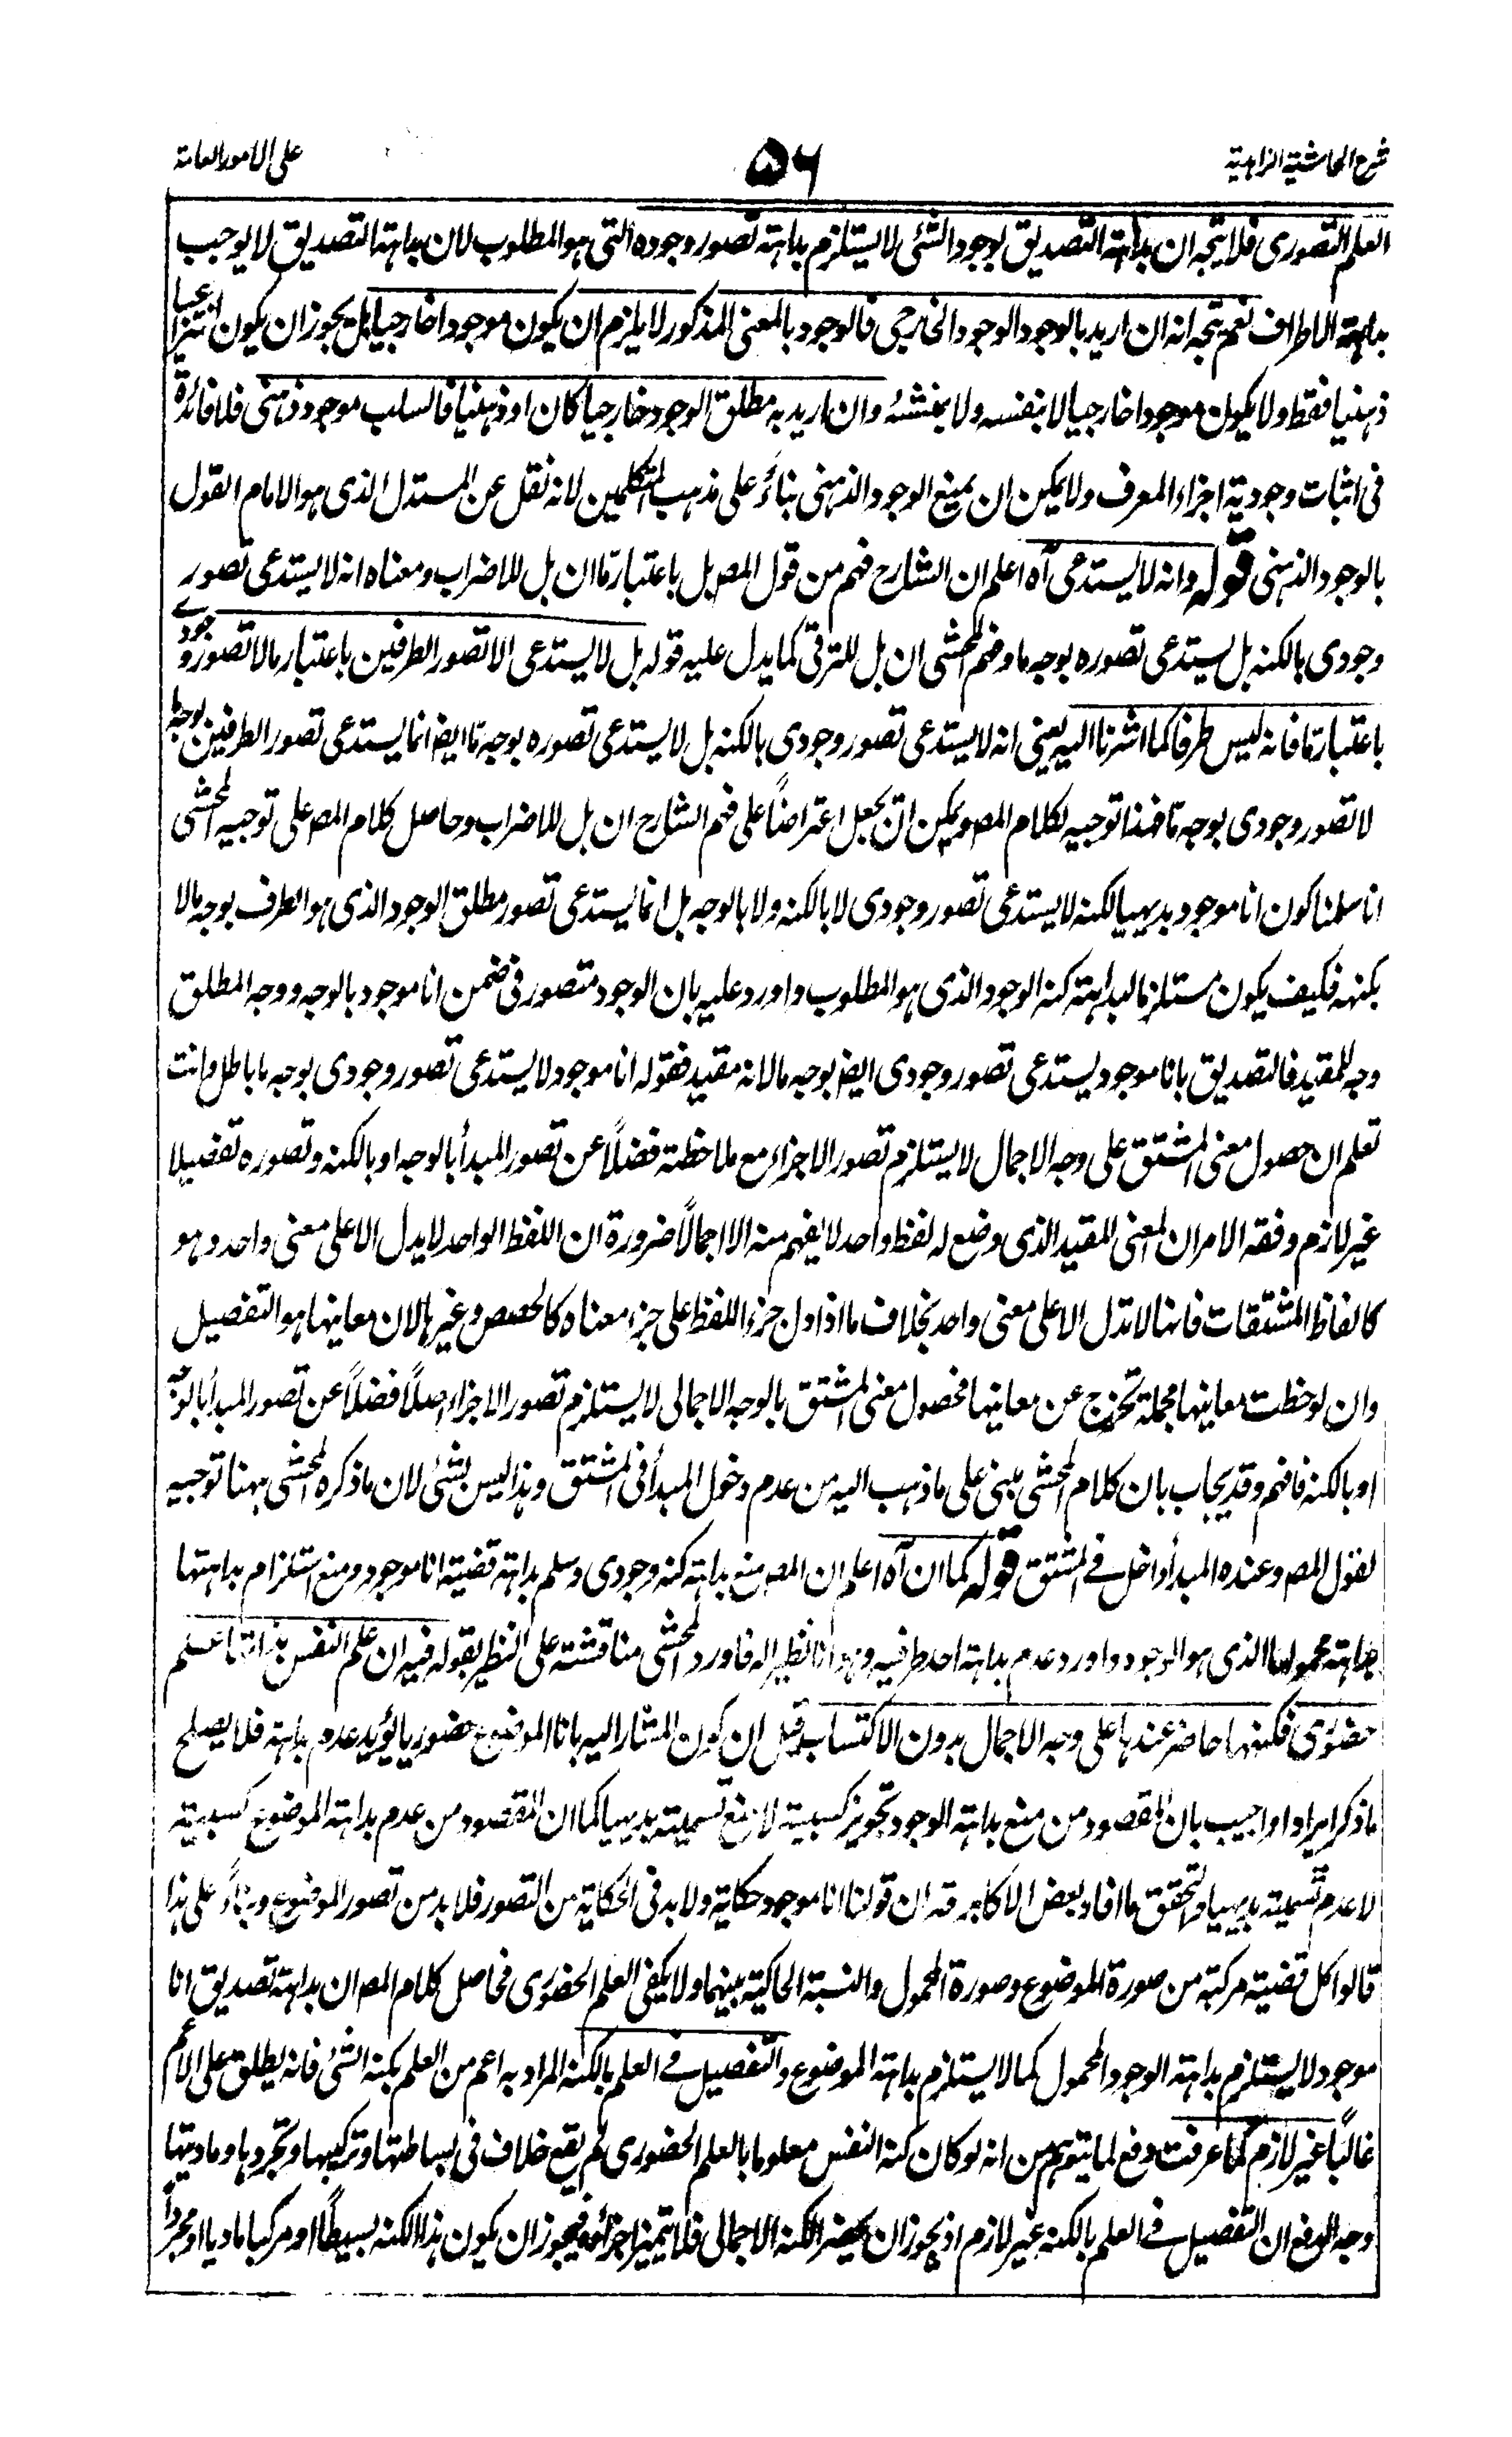 شرح الحاشية الزاهدية
٥٦
على الامور العامة
العلم التصورى فلا يتجه ان بداهة التصديق بوجود الشئ لا يستلزم بداهة تصور وجوده التى هو المطلوب لان بداهة التصديق لا يوجب
بداهة الاطراف نعم يتجه انه ان اريد بالوجود الوجود الخارجى فالوجود بالمعنى المذكور لا يلزم ان يكون موجودا خارجيا بل يجوز ان يكون انتزاعيا
ذهنيا فقط ولا يكون موجودا خارجيا لا بنفسه ولا بمنشئه وان اريد به مطلق الوجود خارجيا كان او ذهنيا فالسلب موجود ذهنى فلا فائدة
فى اثبات وجودية اجزاء المعرف ولا يمكن ان يمنع الوجود الذهنى بناءً على مذهب المتكلمين لانه نقل عن المستدل الذى هو الامام القول
بالوجود الذهنى قوله وانه لا يستدعى آه اعلم ان الشارح فهم من قول المص بل باعتبار ما ان بل للاضراب ومعناه انه لا يستدعى تصور
وجودى بالكنه بل يستدعى تصوره بوجه ما وفهم المحشى ان بل للترقى كما يدل عليه قوله بل لا يستدعى الا تصور الطرفين باعتبار ما لا تصور وجودے
باعتبار ما فانه ليس طرفا كما اشرنا اليه يعنى انه لا يستدعى تصور وجودى بالكنه بل لا يستدعى تصوره بوجه ما ايض انما يستدعى تصور الطرفين بوجه ما
لا تصور وجودى بوجه ما فهذا توجيه لكلام المص ويمكن ان يجعل اعتراضاً على فهم الشارح ان بل للاضراب وحاصل كلام المص على توجيه المحشى
انا سلمنا كون انا موجود بديهيا لكنه لا يستدعى تصور وجودى لا بالكنه ولا بالوجه بل انما يستدعى تصور مطلق الوجود الذى هو الطرف بوجه ما لا
بكنهه فكيف يكون مستلزما لبداهة كنه الوجود الذى هو المطلوب واورد عليه بان الوجود متصور فى ضمن انا موجود بالوجه ووجه المطلق
وجه للمقيد فالتصديق بانا موجود يستدعى تصور وجودى ايض بوجه ما لانه مقيد فقوله انا موجود لا يستدعى تصور وجودى بوجه ما باطل وانت
تعلم ان حصول معنى المشتق على وجه الاجمال لا يستلزم تصور الاجزاء مع ملاحظة فضلًا عن تصور المبدأ بالوجه او بالكنه وتصوره تفصيلا
غير لازم وفقه الامر ان المعنى المقيد الذى وضع له لفظ واحد لا يفهم منه الا اجمالًا ضرورة ان اللفظ الواحد لا يدل الا على معنى واحد وهو
كالفاظ المشتقات فانها لا تدل الا على معنى واحد بخلاف ما اذا دل جزء اللفظ على جزء معناه كالحصص وغيرها لان معانيها هو التفصيل
وان لوحظت معانيها مجملة تخرج عن معانيها فحصول معنى المشتق بالوجه الاجمالى لا يستلزم تصور الاجزاء اصلًا فضلًا عن تصور المبدأ بالوجه
او بالكنه فافهم وقد يجاب بان كلام المحشى مبنى على ما ذهب اليه من عدم دخول المبدأ فى المشتق وهذا ليس بشئ لان ما ذكره المحشى ههنا توجيه
لقول المص وعنده المبدأ داخل فے المشتق قوله كما ان آه اعلم ان المص منع بداهة كنه وجودى وسلم بداهة قضية انا موجود ومنع استلزام بداهتها
بداهة محمولها الذى هو الوجود واورد عدم بداهة احد طرفيه وهو انا نظيرا له فاورد المحشى مناقشة على النظير بقوله فيه ان علم النفس بذاتها علم
حضورى فكنهها حاضر عندها على وجه الاجمال بدون الاكتساب قيل ان كون المشار اليه بانا الموضوع حضوريا يؤيد عدم بداهته فلا يصلح
ما ذكر ايرادا واجيب بان المقصود من منع بداهة الوجود تجويز كسبيته لا منع تسميته بديهيا كما ان المقصود من عدم بداهة الموضوع كسبيته
لا عدم تسميته بديهيا والتحقق ما افاد بعض الاكابر قه ان قولنا انا موجود حكاية ولا بد فى الحكاية من التصور فلا بد من تصور الموضوع وبناءً على هذا
قالوا كل قضية مركبة من صورة الموضوع وصورة المحمول والنسبة الحاكية بينهما ولا يكفى العلم الحضورى فحاصل كلام المص ان بداهة تصديق انا
موجود لا يستلزم بداهة الوجود المحمول كما لا يستلزم بداهة الموضوع والتفصيل فے العلم بالكنه المراد به اعم من العلم بكنه الشئ فانه يطلق على الاعم
غالبًا غير لازم كما عرفت دفع لما يتوهم من انه لو كان كنه النفس معلوما بالعلم الحضورى لم يقع خلاف فى بساطتها وتركيبها وتجردها وماديتها
وجه الدفع ان التفصيل فے العلم بالكنه غير لازم اذ يجوز ان يحضر الكنه الاجمالى فلا يتميز اجزائه فيجوز ان يكون هذا الكنه بسيطًا او مركبا ماديا او مجردًا